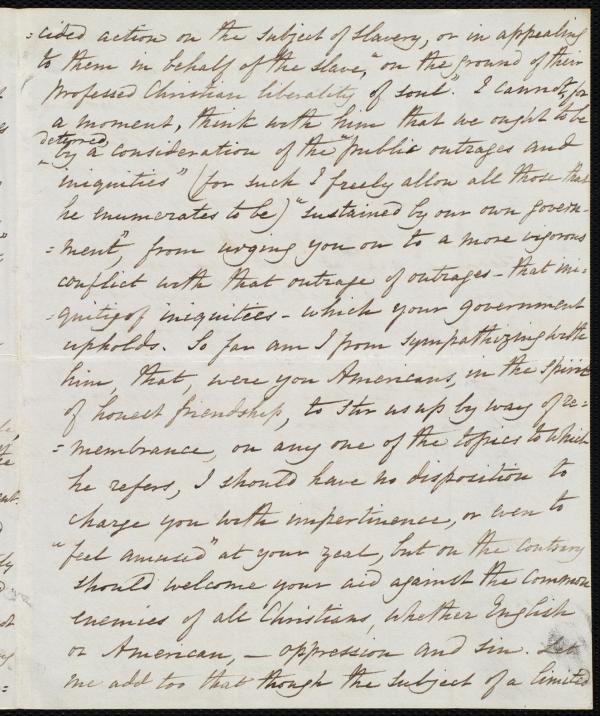 =cided action on the subject of slavery, or in appealing
to them in behalf of the slave, "on the ground of their
professed Christian liberality of soul". I cannot, for
a moment, think with him that we ought to be
deterred
by a consideration of the "public outrages and
iniquities" (for such I freely allow all those that
he enumerates to be) "sustained by our own govern-
=ment", from urging you on to a more vigorous
conflict with that outrage of outrages - that ini=
=quity of iniquities - which your government
upholds. So far am I from sympathizing with
him, that, were you Americans, in the spirit
of honest friendship, to stir us up by way of re=
=membrance, on any one of the topics to which
he refers, I should have no disposition to
charge you with impertinence, or even to
"feel amused" at your zeal, but on the contrary
should welcome your aid against the common
enemies of all Christians, whether English
or American, - oppression and sin. Let
me add too that though the subject of a limited